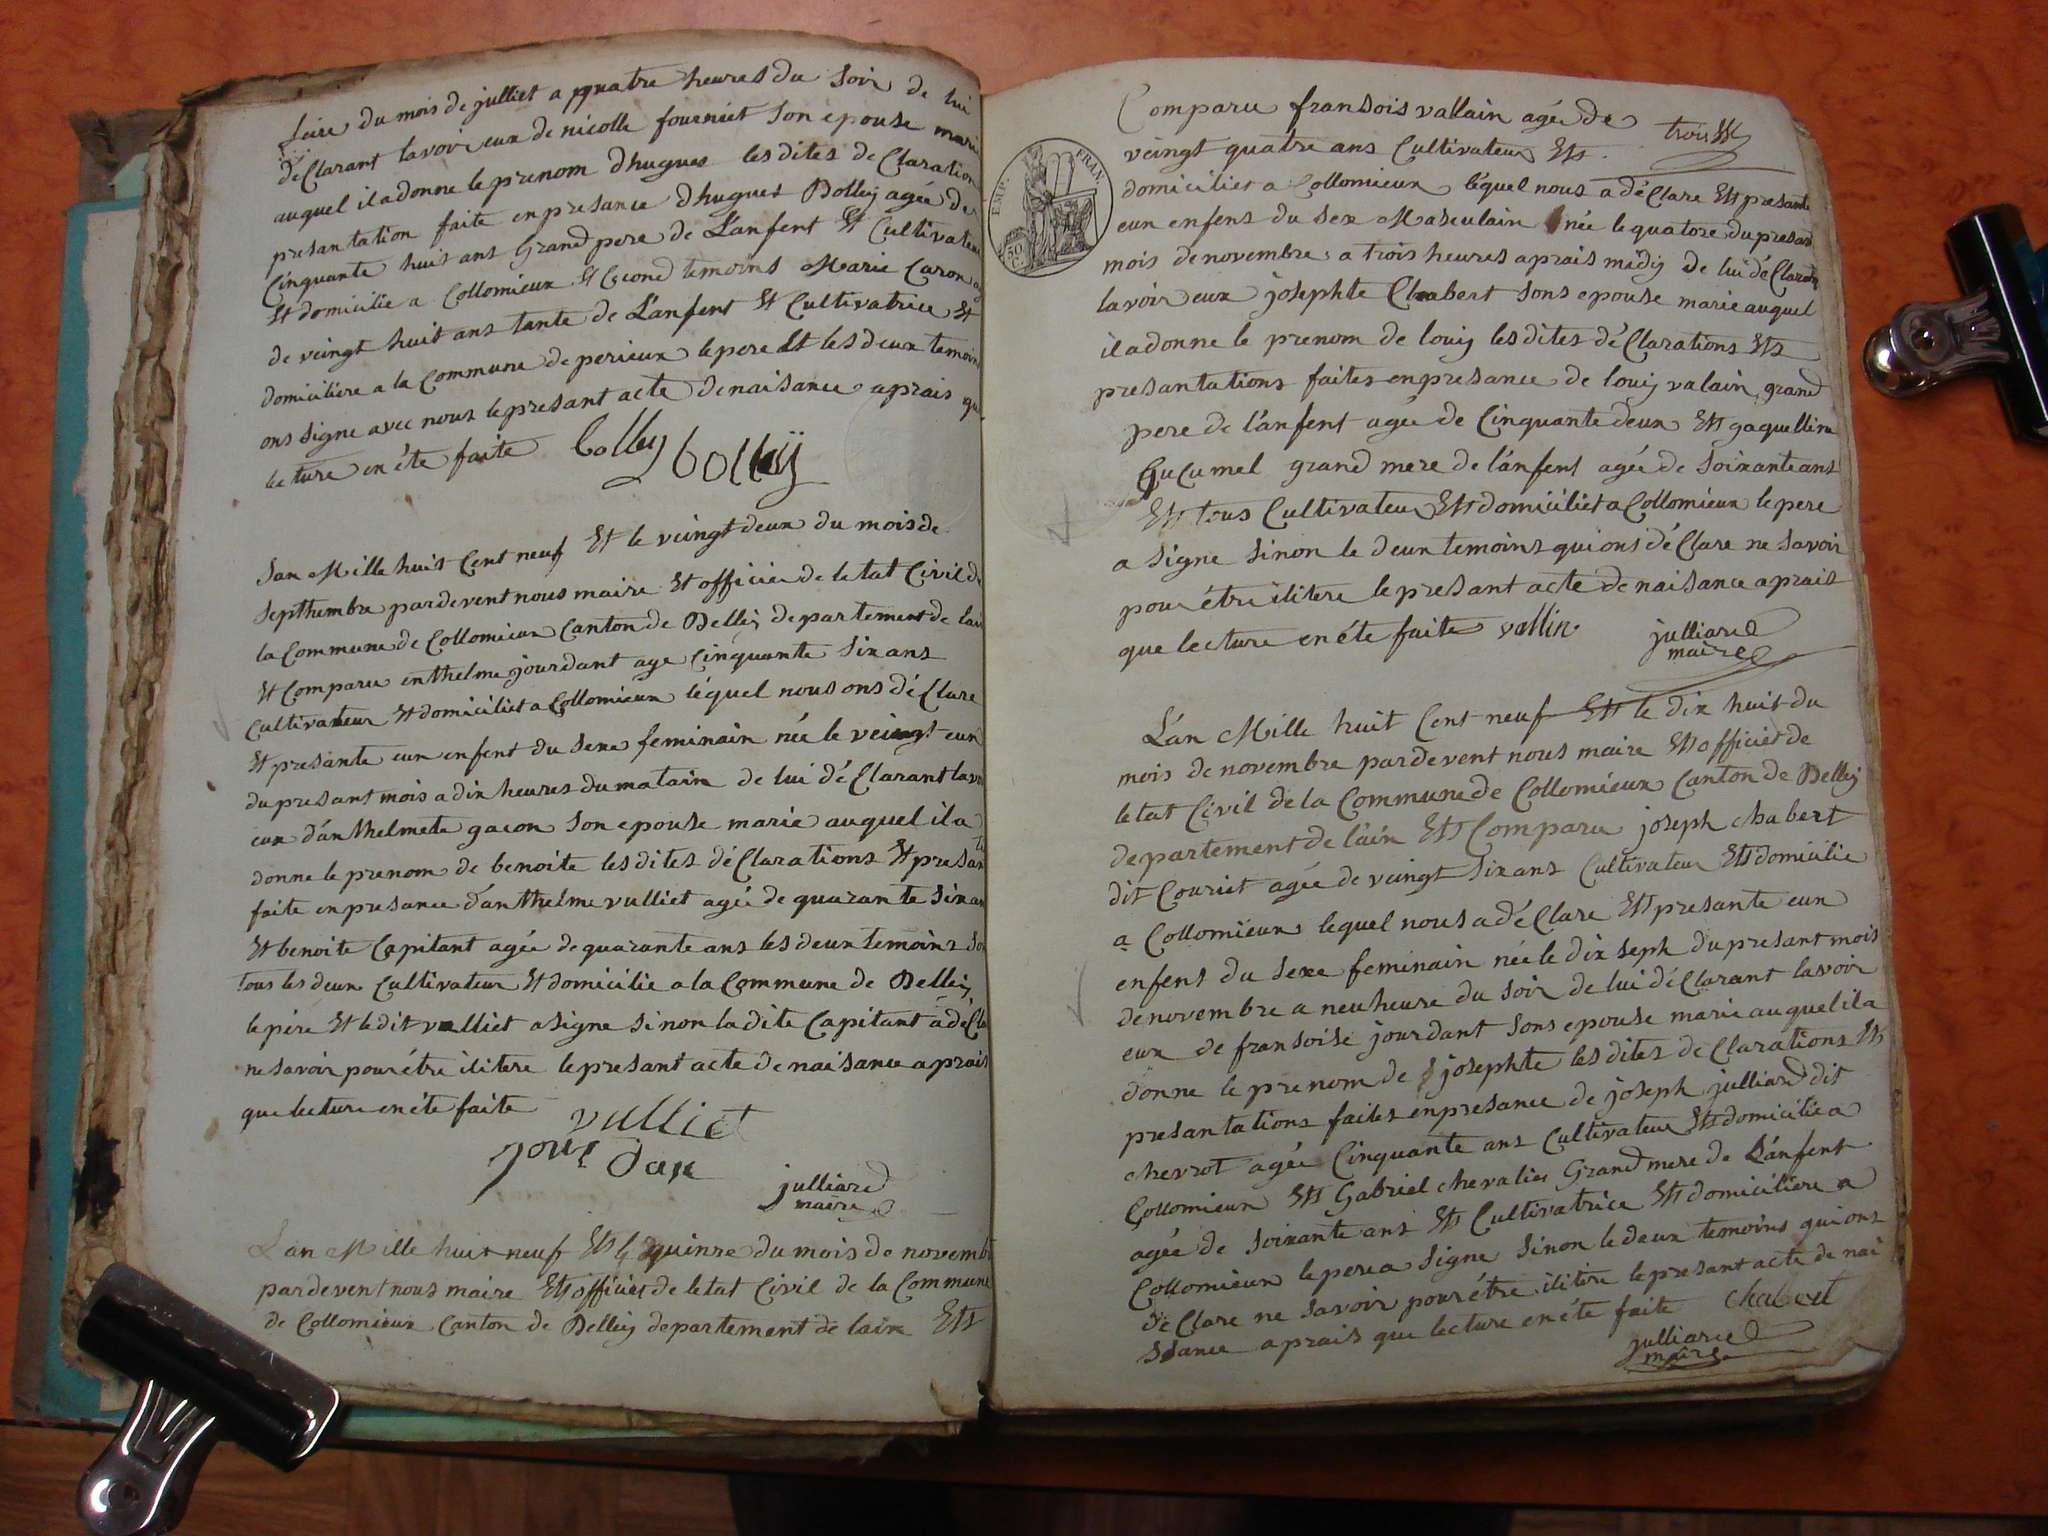 du mois de julliet a quatre heures du soir de lui
déClarant lavoir eux de nicolle fourniet son epouse marie
auquel il a donne le prenom dhugues les dites deClaration
presantation faite en presance dhugues Bolley agée de
Cinquante huit ans Grand pere de L'anfent Et Cultivateur
Et domicilie a Collomieux Et second temoins Marie Caron
de veingt huit ans tante de L'anfent Et Cultivatrice Et
domiciliere a la Commune de perieux le pere Et les deux temoins
ons signe avec nous le presant acte de naisance aprais que
lecture en éte faite Bolley bolley
Lan Mille huit Cent neuf Et le veingt deux du mois de
septhembre pardevent nous maire Et officier de letat Civil de
la Commune de Collomieux Canton de Belley departement de lain
Et Comparu enthelme jourdant age Cinquante six ans
Cultivateur Et domiciliet a Collomieux léquel nous ons déClare
Et presante eun enfent du sexe feminain née le veingt eun
du presant mois a dix heures du matain de lui déClarant lavoir
eux d'anthelmete gacon son epouse marie auquel il a
donne le prenom de benoite les dites déClarations Et presan
faite en presance d'anthelme vulliet agée de quarante six ans
Et benoite Capitant agée de quarante ans les deux temoins son
tous les deux Cultivateur Et domicilie a la Commune de Belley
le pére Et le dit vulliet a signe sinon la dite Capitant a déCla
ne savoir pour étre ilitere le presant acte de naisance aprais
que lecture en éte faite
vulliet
jourdan
julliard
maire
Lan Mille huit neuf Ets le quinze du mois de novembre
pardevent nous maire Ets officiet de letat Civil de la Commune
de Collomieux Canton de Belley departement de lain Ets
EMP. FRAN.
50 C.
Comparu fransois vallain agée de trois
veingt quatre ans Cultivateur Ets
domiciliet a Collomieux léquel nous a déClare Ets presante
eun enfens du sex Masculain née le quatore du presant
mois de novembre a trois heures aprais midy de lui déClarant
lavoir eux josephte Chabert sons epouse marie auquel
il a donne le prenom de louis les dites déClarations Ets
presantations faites en presance de louis valain grand
pere de l'anfent agée de Cinquante deux Ets gaquelline
Gucumel grand mere de l'anfent agée de soixante ans
Ets tous Cultivateur Ets domiciliet a Collomieux le pere
a signe sinon le deux temoins qui ons déClare ne savoir
pour étre ilitere le presant acte de naisance aprais
que lecture en éte faite vallin
julliard
maire
L'an Mille huit Cent neuf Ets le dix huit du
mois de novembre pardevent nous maire Ets officiet de
letat Civil de la Commune de Collomieux Canton de Belley
departement de l'ain Ets Comparu joseph chabert
dit Couriet agée de veingt six ans Cultivateur Ets domicilie
a Collomieux lequel nous a déClare Ets presante eun
enfens du sexe feminain née le dix seph du presant mois
de novembre a neuheure du soir de lui déClarant lavoir
eux de fransoise jourdant sons epouse marie auquel il a
donne le prenom de josephte les dites deClarations Ets
presantations faites en presance de joseph julliard dit
chevrot agée Cinquante ans Cultivateur Ets domicilie a
Collomieux Ets Gabriel chevalier Grand mere de L'anfent
agée de soixante ans Ets Cultivatrice Ets domiciliere a
Collomieux le pere a signe sinon le deux temoins qui ons
déClare ne savoir pour étre ilitere le presant acte de nai
sance aprais que lecture en éte faite chabert
julliard
maire